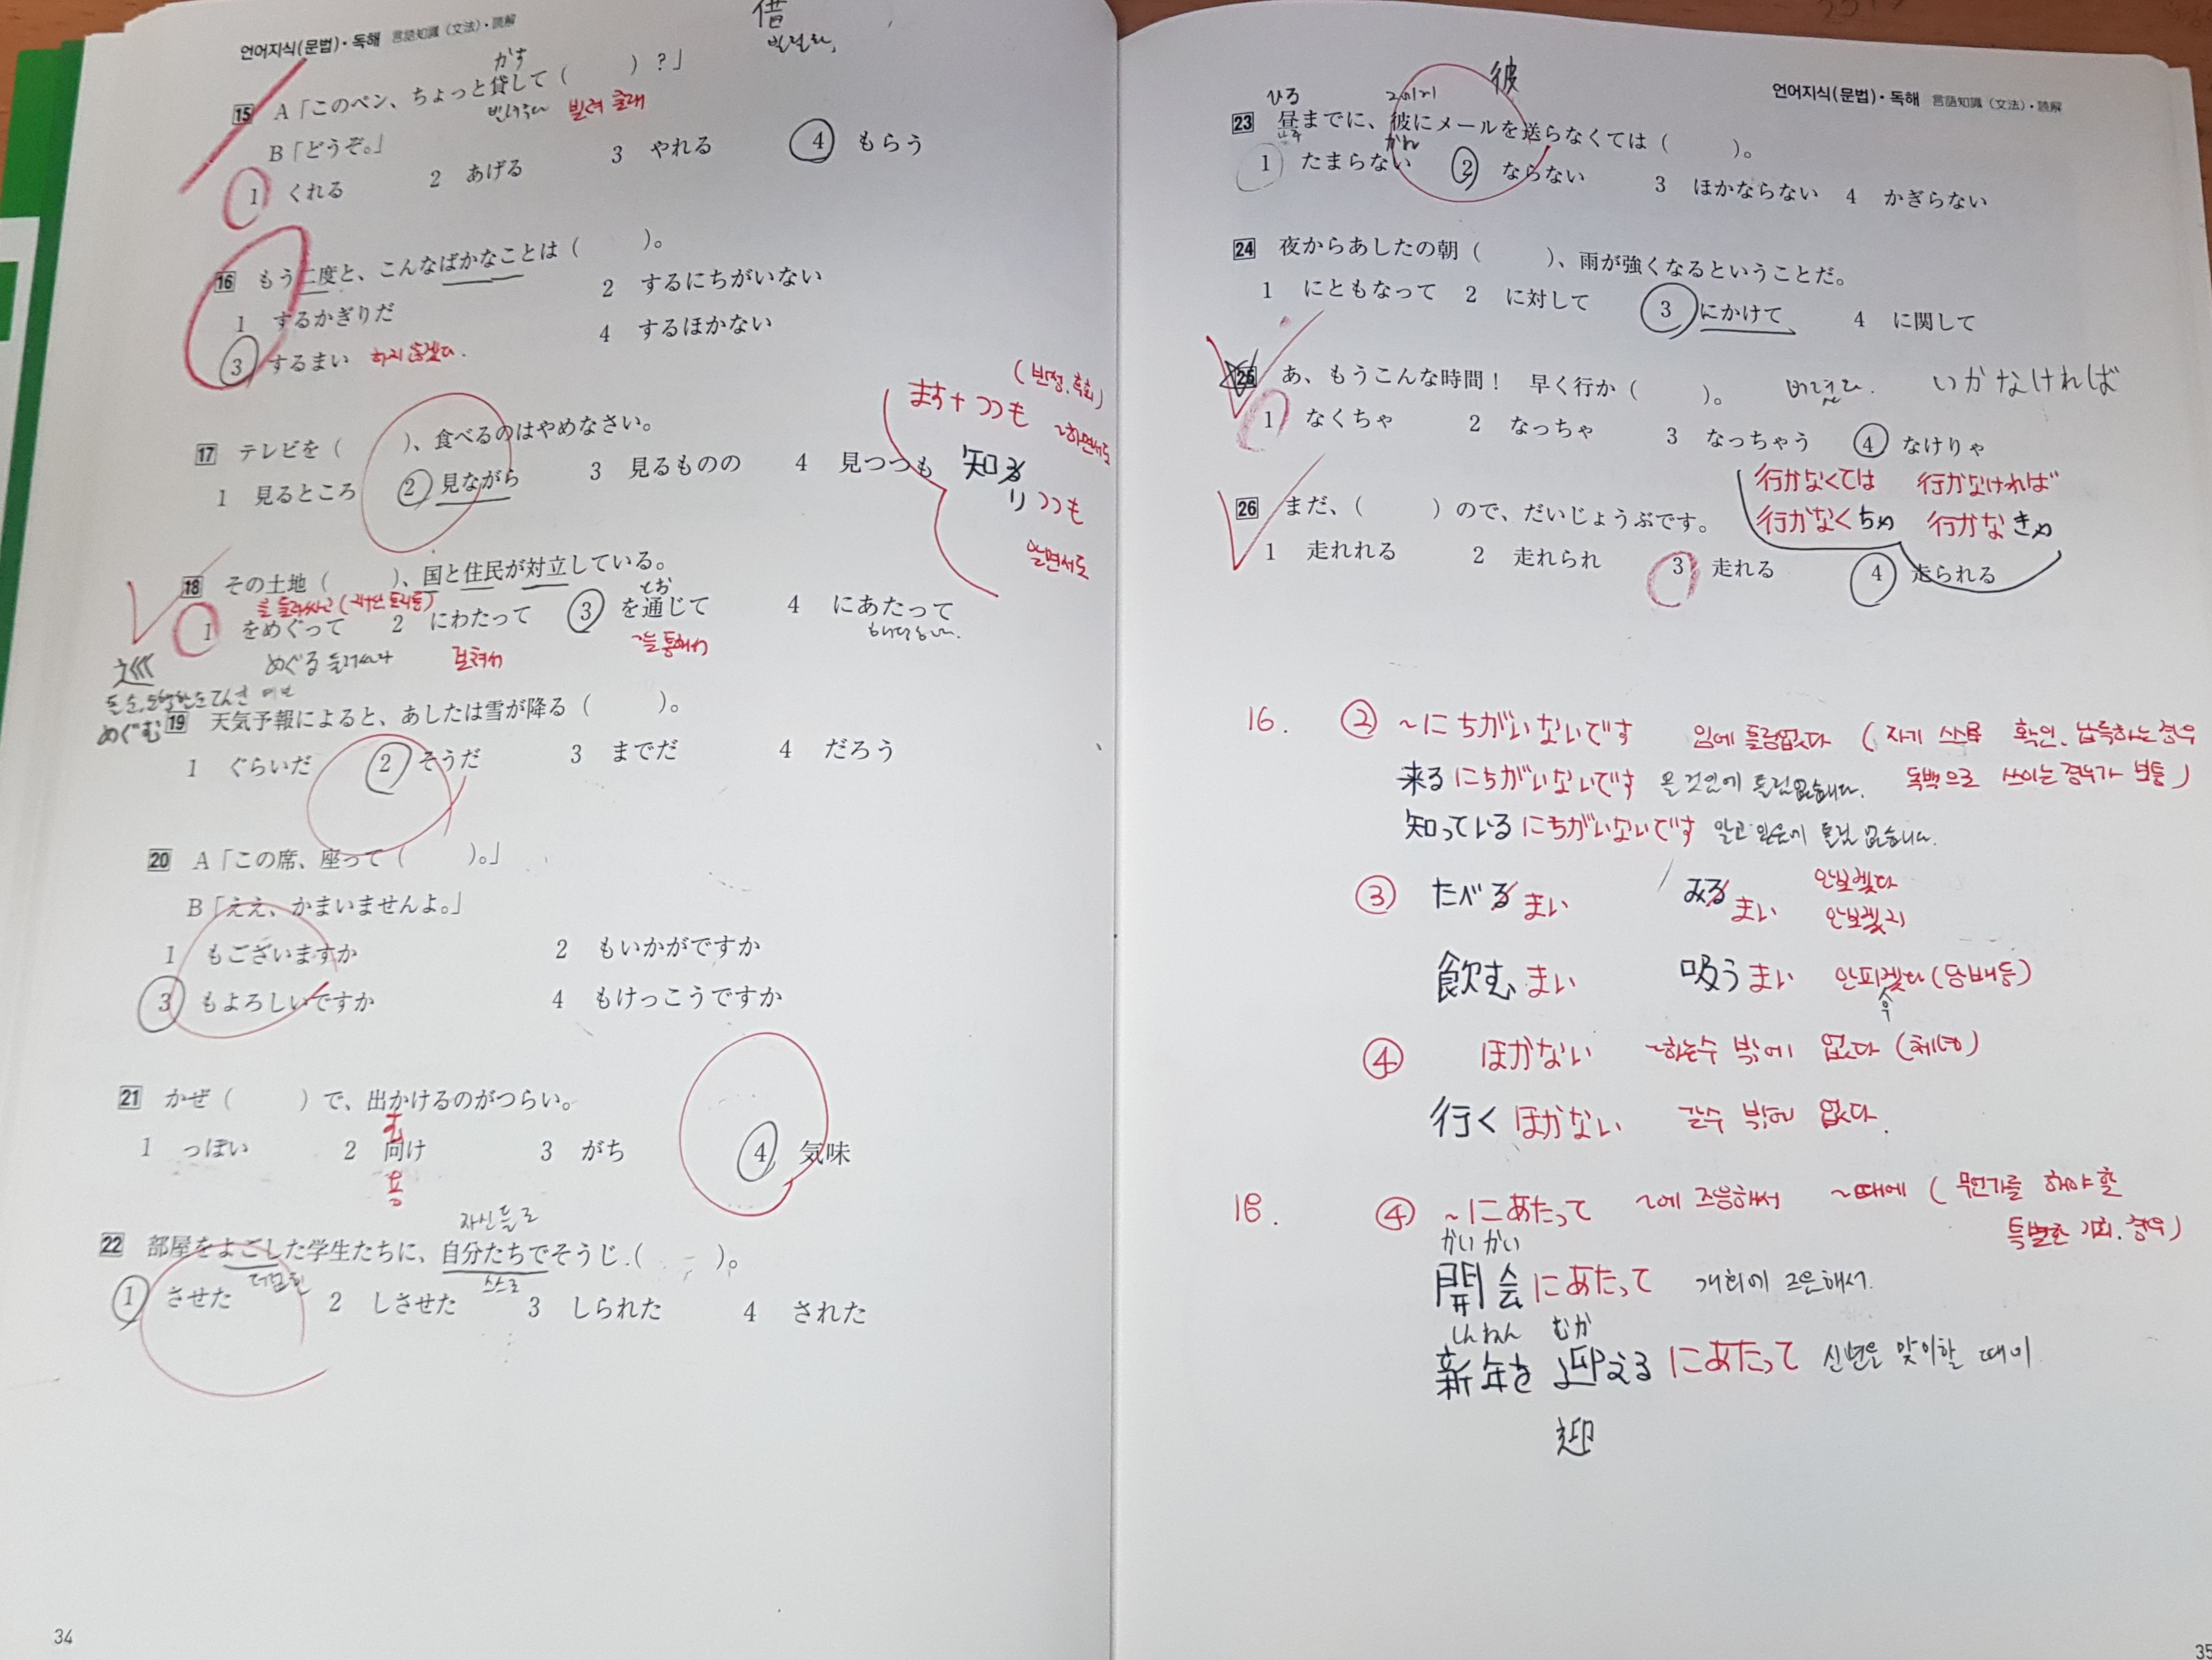 언어지식(문법)・독해 言語知識（文法）・読解
借
빌리다,
かす
15 A「このペン、ちょっと貸して（　　）？」
빌려주다 빌려 줄래
B「どうぞ。」
1 くれる 2 あげる 3 やれる 4 もらう
16 もう二度と、こんなばかなことは（　　）。
1 するかぎりだ 2 するにちがいない
3 するまい 하지 않겠다. 4 するほかない
17 テレビを（　　）、食べるのはやめなさい。
1 見るところ 2 見ながら 3 見るものの 4 見つつも
ます+つつも (반성, 후회)
~하면서도
知る
りつつも
알면서도
18 その土地（　　）、国と住民が対立している。
を 둘러싸고
とお
1 をめぐって 2 にわたって 3 を通じて 4 にあたって
めぐる 둘러싸다 걸쳐서 を통해서
めぐむ
19 天気予報によると、あしたは雪が降る（　　）。
1 ぐらいだ 2 そうだ 3 までだ 4 だろう
20 A「この席、座って（　　）。」
B「ええ、かまいませんよ。」
1 もございますか 2 もいかがですか
3 もよろしいですか 4 もけっこうですか
21 かぜ（　　）で、出かけるのがつらい。
む
1 っぽい 2 向け 3 がち 4 気味
용
자신들로
22 部屋をよごした学生たちに、自分たちでそうじ（　　）。
더럽힌 스스로
1 させた 2 しさせた 3 しられた 4 された
34
언어지식(문법)・독해 言語知識（文法）・読解
ひる 彼
23 昼までに、彼にメールを送らなくては（　　）。
かれ
1 たまらない 2 ならない 3 ほかならない 4 かぎらない
24 夜からあしたの朝（　　）、雨が強くなるということだ。
1 にともなって 2 に対して 3 にかけて 4 に関して
25 あ、もうこんな時間！ 早く行か（　　）。 いかなければ
1 なくちゃ 2 なっちゃ 3 なっちゃう 4 なけりゃ
行かなくては 行かなければ
行かなくちゃ 行かなきゃ
26 まだ、（　　）ので、だいじょうぶです。
1 走れれる 2 走れられ 3 走れる 4 走られる
16. ② ~にちがいないです 임에 틀림없다 (자기 스스로 확인, 납득하는 경우
독백으로 쓰이는 경우가 보통)
来るにちがいないです 올 것임에 틀림없습니다.
知っているにちがいないです 알고 있음에 틀림 없습니다.
③ たべるまい みるまい 안보겠다
안보겠지
飲むまい 吸うまい 안피겠다(담배등)
우
④ ほかない ~하는수 밖에 없다 (체념)
行くほかない 갈수 밖에 없다.
18. ④ ~にあたって ~에 즈음해서 ~때에 (무언가를 해야 할
특별한 기회, 경우)
かいかい
開会にあたって 개회에 즈음해서.
しんねん むか
新年を迎えるにあたって 신년을 맞이할 때에
迎
35